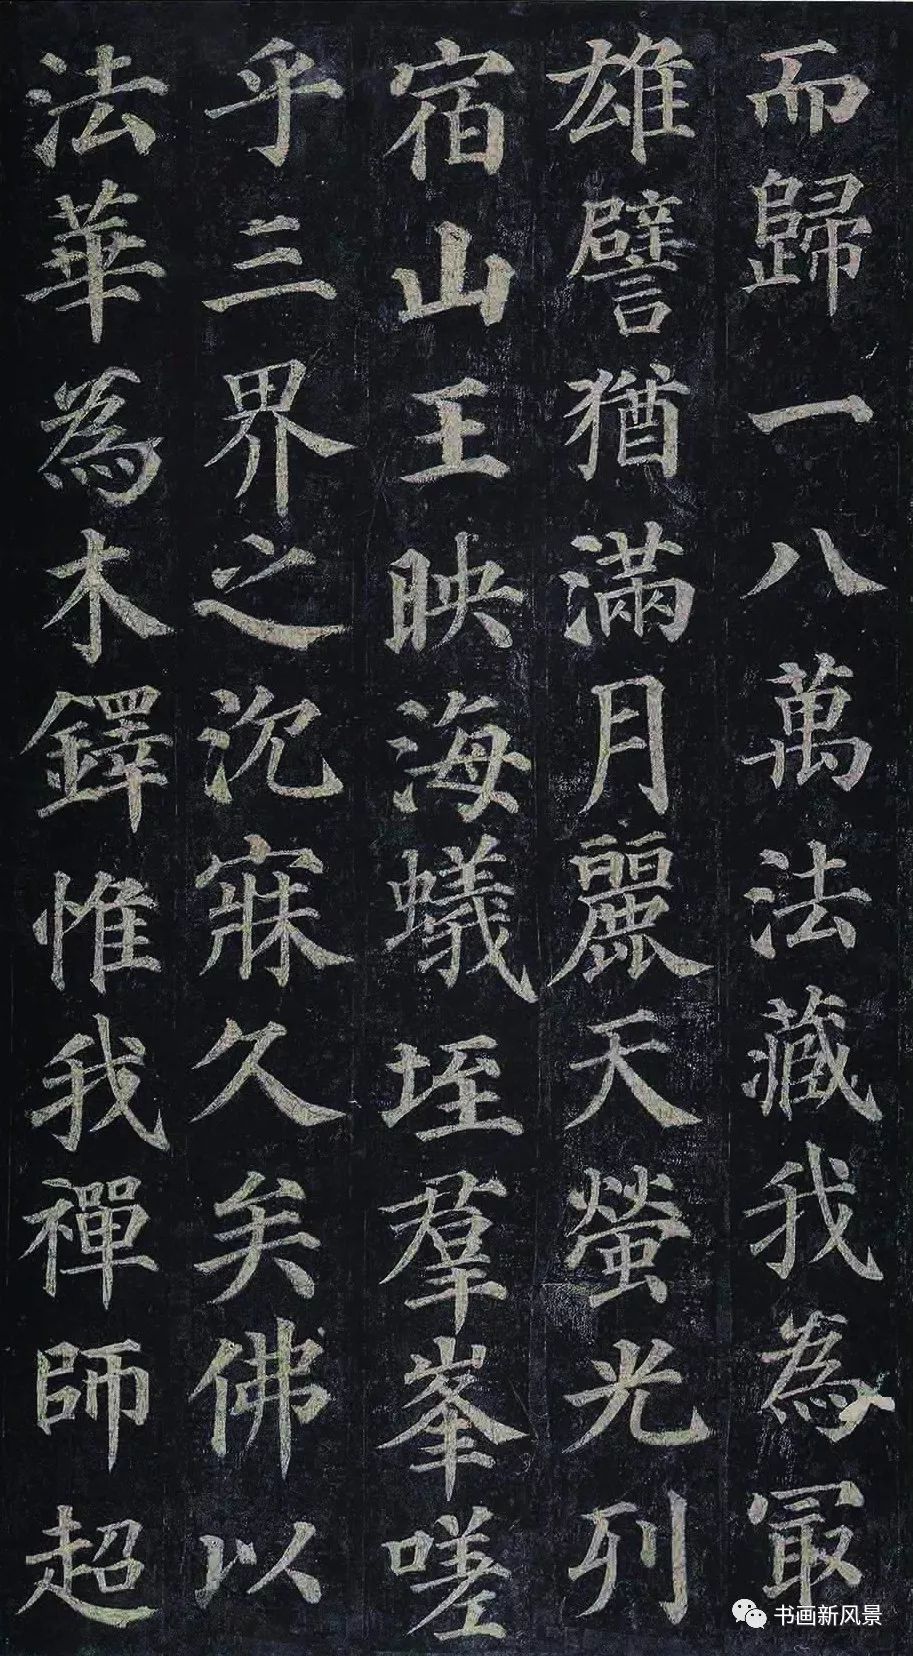 而歸一八萬法藏我為冣
雄譬猶滿月麗天螢光列
宿山王映海蟻垤羣峯嗟
乎三界之沉寐久矣佛以
法華為木鐸惟我禪師超
书画新风景